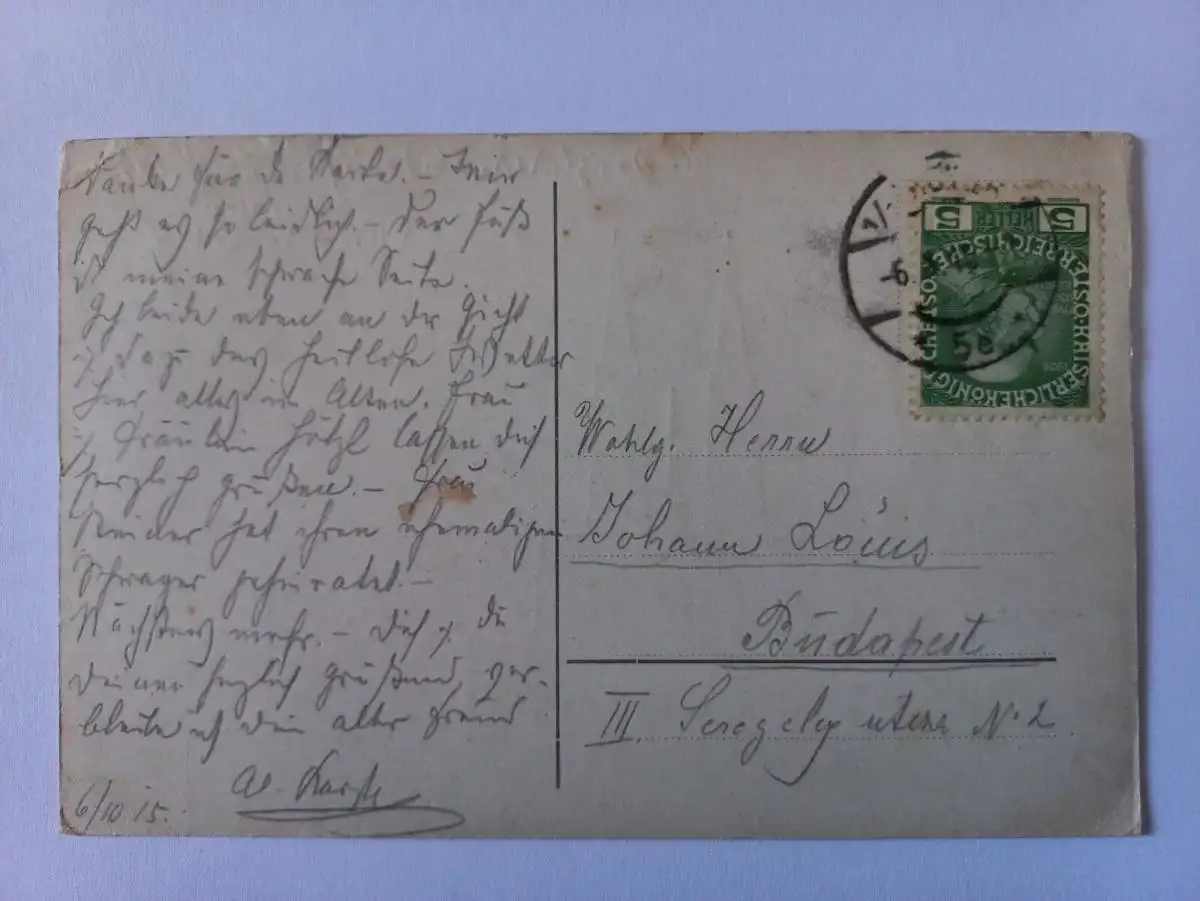 Danke für de Karte. – Mir
geht es so leidlich – Der Fuß
ist meine schwache Seite.
Ich leide eben an der Gicht
dazu das Wetter
Hier alles im Alten. Frau
Fräulein lassen dich
herzlich grüßen. – Frau
hat ihren ehemaligen
Schwager geheiratet. –
Nächstens mehr. – Dich die
Deinen herzlich grüßend, ver-
bleibe ich dein alter Freund
6/10 15.
5 HELLER 5
KAISERLICHEKÖNIGLICHEÖSTERREICHISCHEPOST
Wohlg. Herrn
Johann Löuis
Budapest
III. Seregely utcza No 2